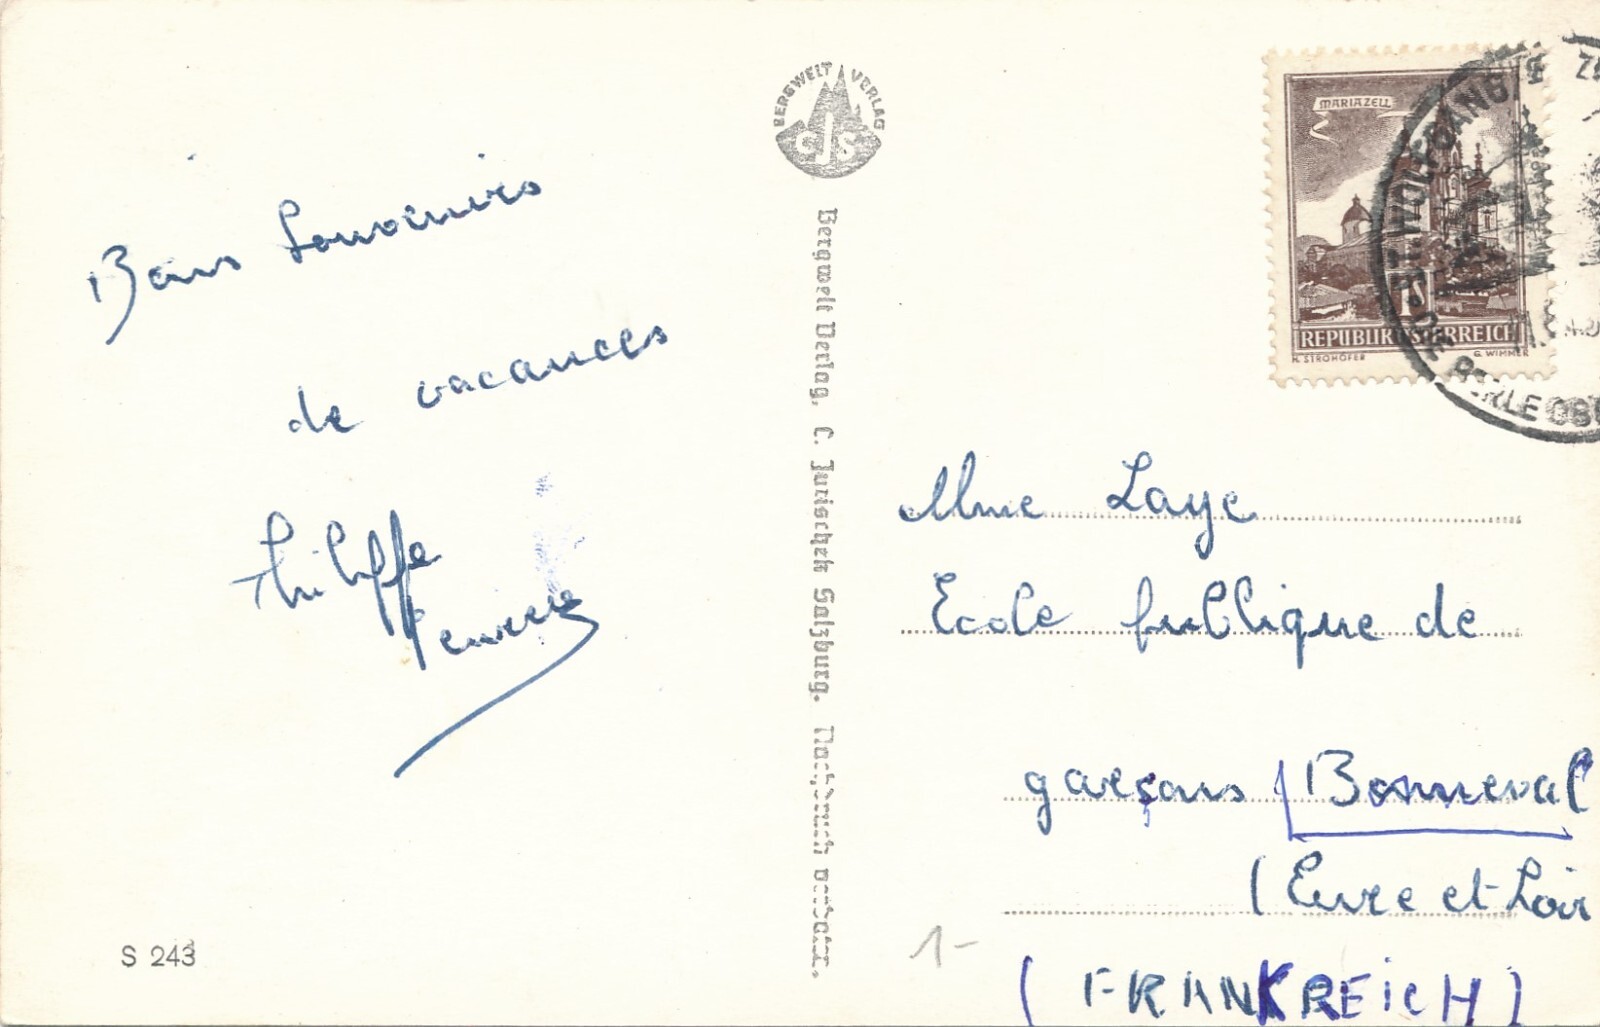 Bons Souvenirs
de vacances
Philippe
S 243
BERGWELT VERLAG
CJS
Bergwelt Verlag, C. Jurischek Salzburg. Nachdruck verboten.
MARIAZELL
1S
REPUBLIK ÖSTERREICH
H. STROHOFER G. WIMMER
ST. WOLFGANG
Mme Laye
Ecole publique de
garçons Bonneval
(Eure et Loir
(FRANKREICH)
1-